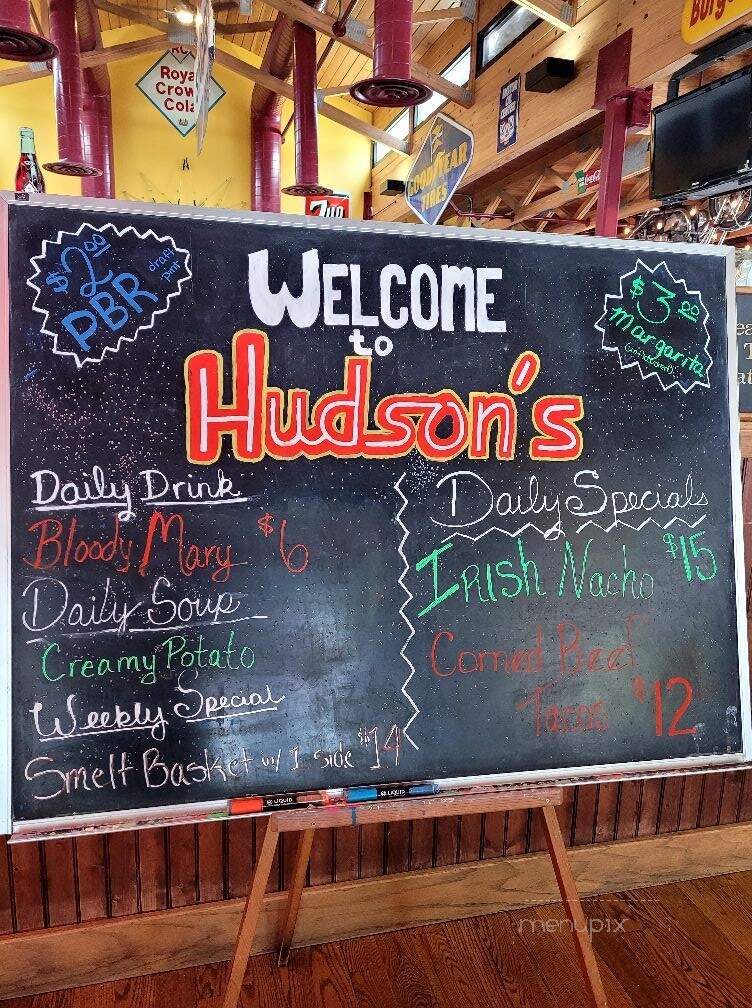 Royal
Crown
Cola
GOODYEAR
TIRES
7up
$2.00
PBR
draft
pint
$3.00
margarita
WELCOME
to
Hudson's
Daily Drink
Bloody Mary $6
Daily Soup
Creamy Potato
Weekly Special
Smelt Basket w/ 1 side $14
Daily Specials
IRISH Nacho $15
Corned Beef
Tacos $12
LIQUID
LIQUID
menupix